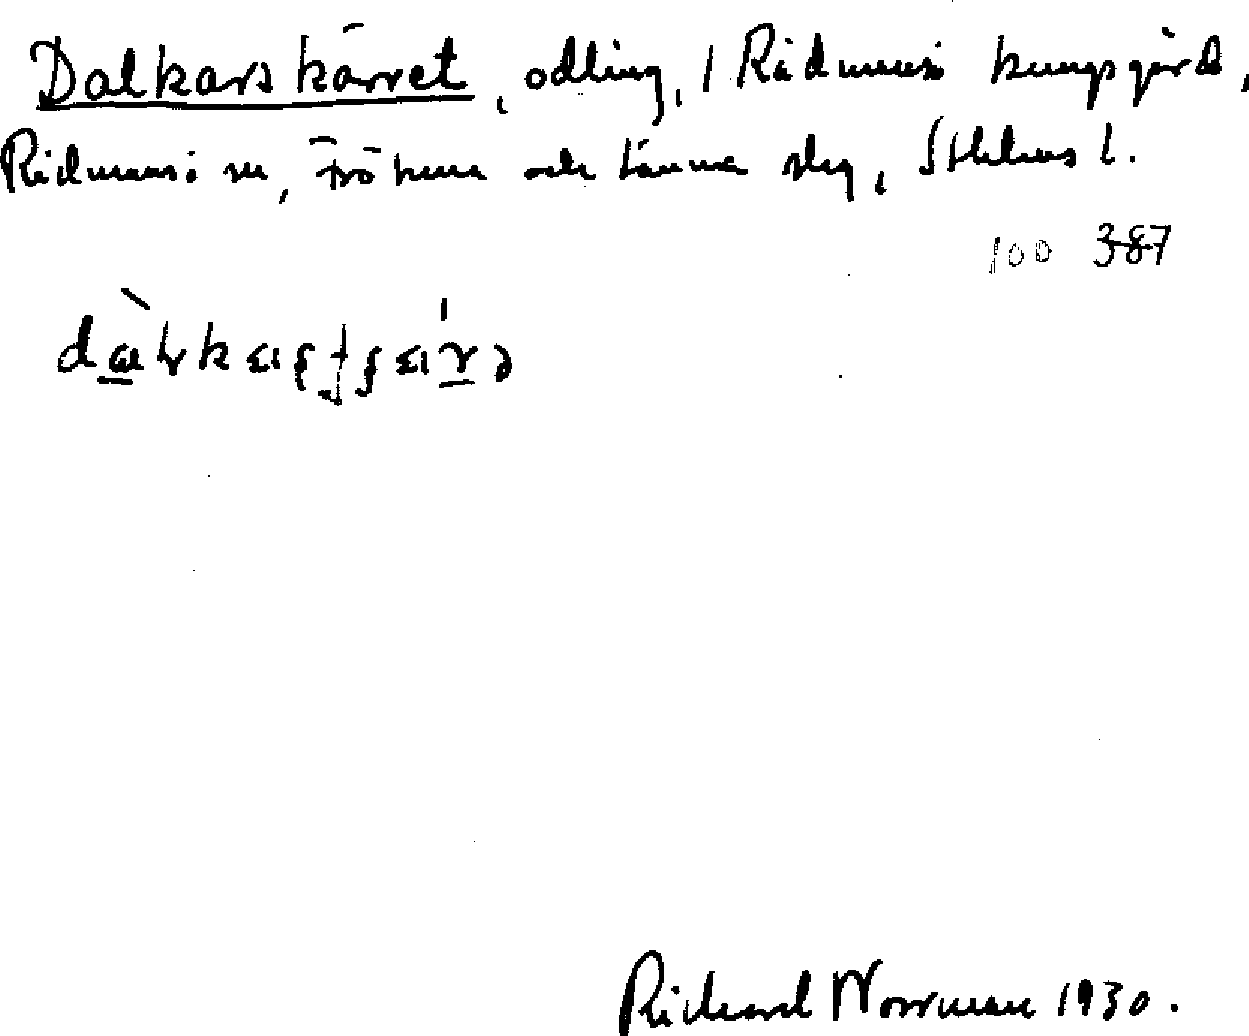 Dalkarskärret, odling, / Rådmansö kungsgård,
Rådmansö sn, Frötuna och Länna sklg, Sthlms l.
100 387
Richard Norrman 1930.